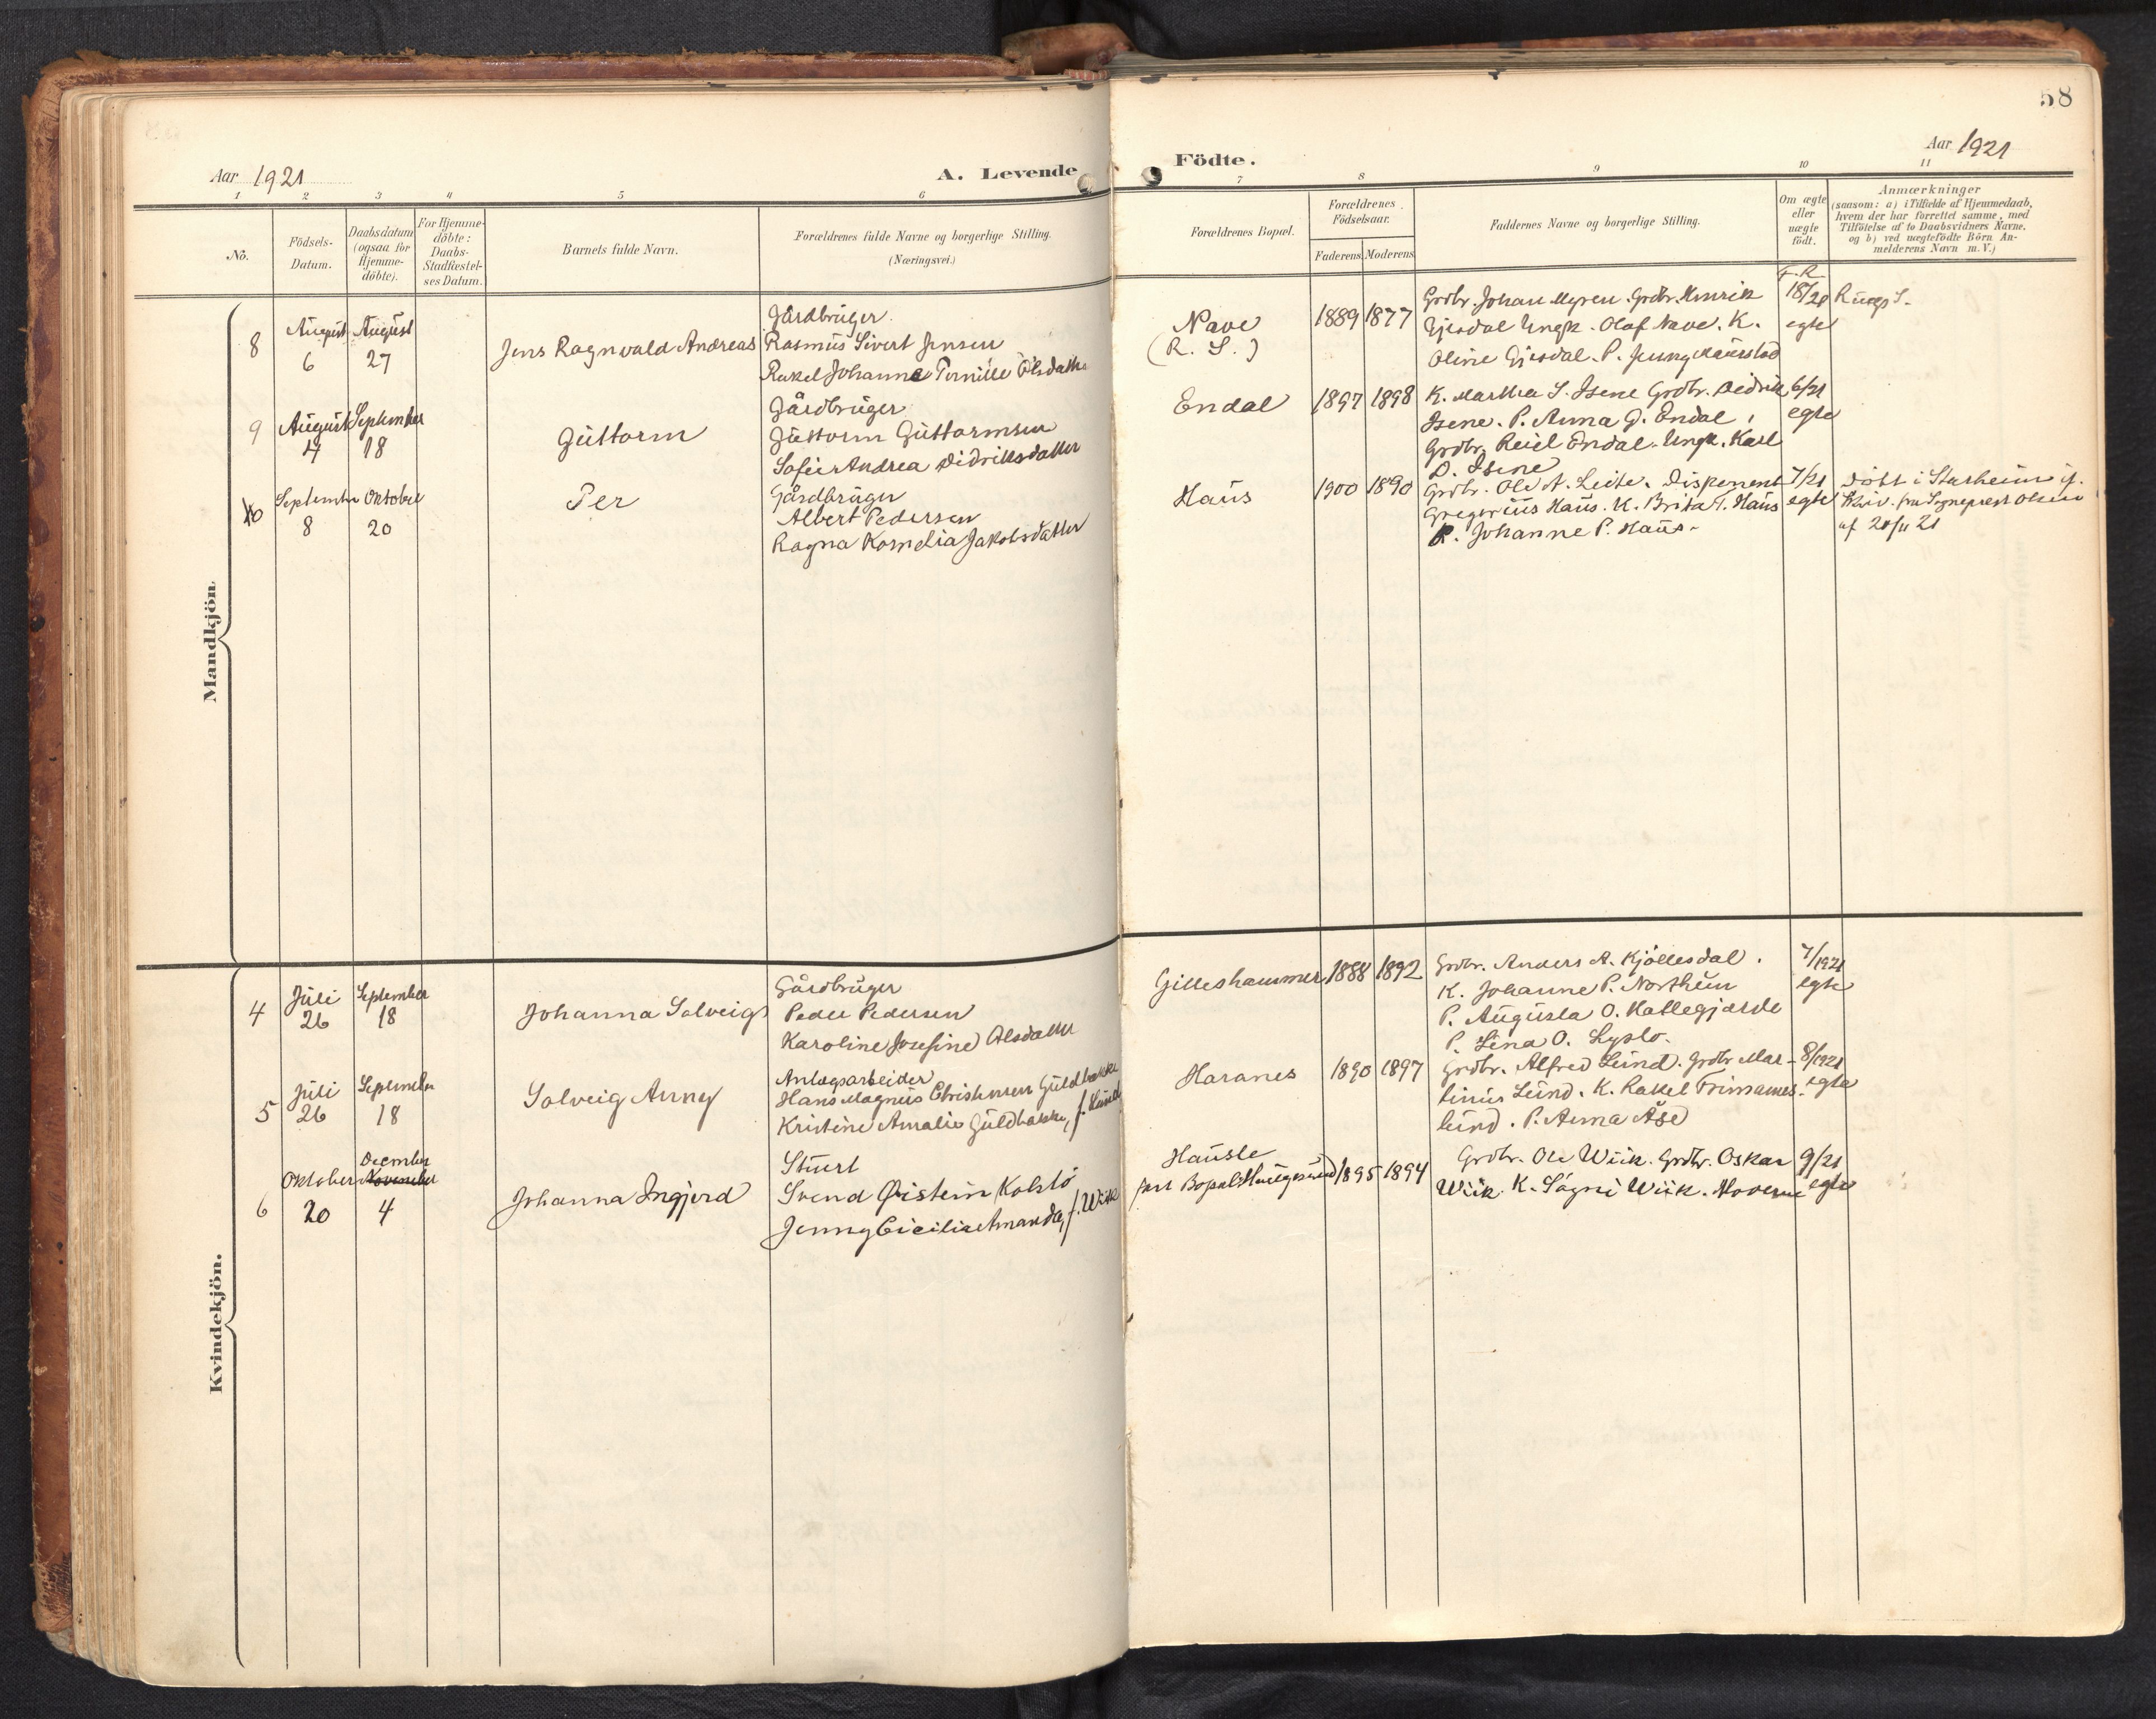 58
Aar 1921
A. Levende
Födte.
Aar 1921
1 2 3 4 5 6 7 8 9 10 11
No.
Födsels-
Datum.
Daabsdatum
(ogsaa for
Hjemme-
döbte).
For Hjemme-
döbte:
Daabs-
Stadfæstel-
ses Datum.
Barnets fulde Navn.
Forældrenes fulde Navne og borgerlige Stilling.
(Næringsvei.)
Forældrenes Bopæl.
Forældrenes
Födselsaar.
Faderens Moderens
Faddernes Navne og borgerlige Stilling.
Om ægte
eller
uægte
födt.
Anmærkninger
(saasom: a) i Tilfælde af Hjemmedaab,
hvem der har forrettet samme, med
Tilföielse af to Daabsvidners Navne,
og b) ved uægtefödte Börn An-
melderens Navn m. V.)
Mandkjön.
8
August
6
August
27
Jens Ragnvald Andreas
Gårdbruger
Rasmus Sivert Jensen
Rakel Johanne Pernille Olsdatter
Nave
(R. S.)
1889 1877
Grdbr. Johan Myren. Grdbr. Henrik
Gjesdal Ungk. Olaf Nave. K.
Oline Gjesdal. P. Jenny Maurstad
18/21
egte
9
August
4
September
18
Guttorm
Gårdbruger
Guttorm Guttormsen
Sofie Andrea Didriksdatter
Endal
1897 1898
K. Martha S. Isene Grdbr. Didrik
Isene. P. Anna G. Endal.
Grdbr. Reiel Endal. Ungk. Karl
D. Isene
6/21
egte
10
September
8
Oktober
20
Per
Gårdbruger
Albert Pedersen
Ragna Kornelia Jakobsdatter
Haus
1900 1890
Grdbr. Ole A. Leite. Disponent
Gregorius Haus. K. Brita T. Haus
P. Johanne P. Haus-
7/21
egte
Döbt i Starheim if.
Skriv. fra Sogneprest Olsen
af 20/11 21
Kvindekjön.
4
Juli
26
September
18
Johanna Solveig
Gårdbruger
Peder Pedersen
Karoline Josefine Olsdatter
Gilleshammer
1888 1892
Grdbr. Anders A. Kjöllesdal.
K. Johanne P. Northun
P. Augusta O. Hatlegjærde
P. Lina O. Lyslo.
7/1921
egte
5
Juli
26
September
18
Solveig Anny
Anlægsarbeider
Hans Magnus Christensen Guldbakke
Kristine Amalie Guldbakke, f. Lund
Haranes
1890 1897
Grdbr. Alfred Lund. Grdbr. Mar-
tinius Lund. K. Rakel Trimanes-
lund. P. Anna Åse
8/1921
egte
6
Oktober
20
December
November
4
Johanna Ingjerd
Stuert
Svend Øistein Kolstö
Jenny Cicilie Amanda, f. Wiik
Hausle
fast Bopæl: Haugesund
1895 1894
Grdbr. Ole Wiik. Grdbr. Oskar
Wiik. K. Sögni Wiik. Moderen
9/21
egte